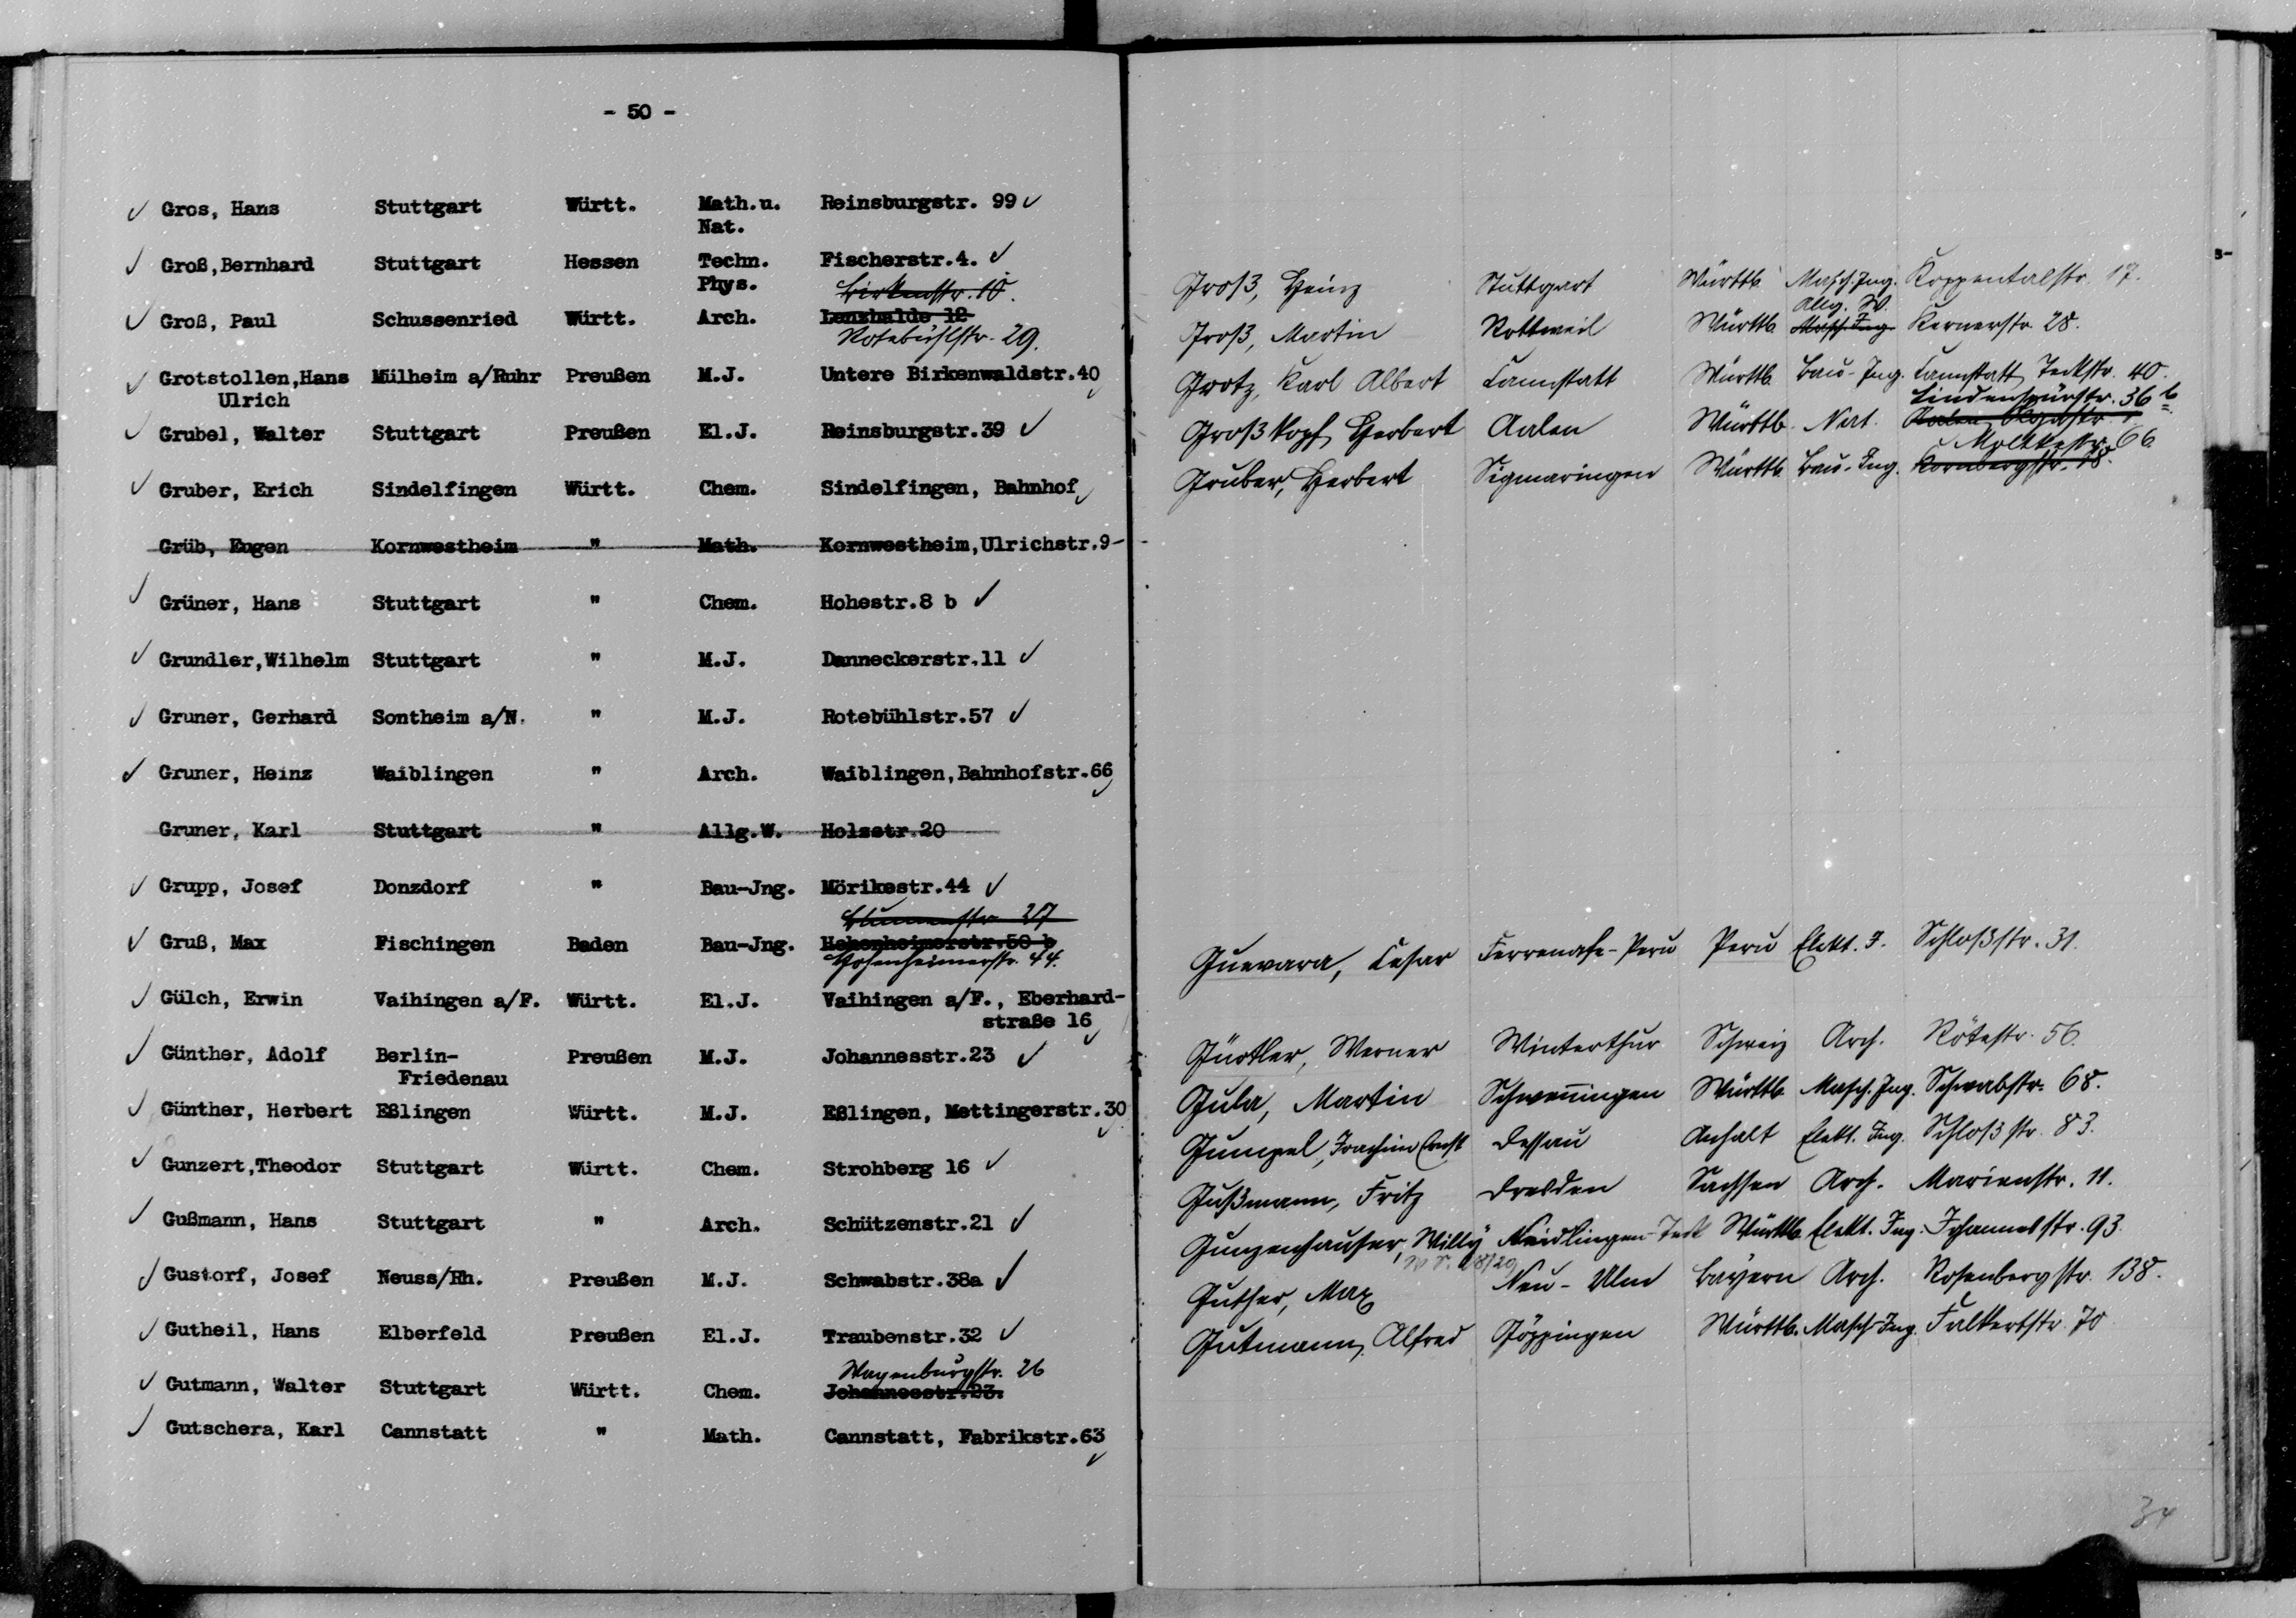 - 50 -
Gros, Hans Stuttgart Württ. Math.u. Reinsburgstr. 99
Nat.
Groß,Bernhard Stuttgart Hessen Techn. Fischerstr.4.
Phys. Birkenstr. 10.
Groß, Paul Schussenried Württ. Arch. Lenzhalde 12
Rotebühlstr. 29.
Grotstollen,Hans Mülheim a/Ruhr Preußen M.J. Untere Birkenwaldstr.40
Ulrich
Grubel, Walter Stuttgart Preußen El.J. Reinsburgstr.39
Gruber, Erich Sindelfingen Württ. Chem. Sindelfingen, Bahnhof
Grüb, Eugen Kornwestheim " Math. Kornwestheim,Ulrichstr.9
Grüner, Hans Stuttgart " Chem. Hohestr.8 b
Grundler,Wilhelm Stuttgart " M.J. Danneckerstr.11
Gruner, Gerhard Sontheim a/N. " M.J. Rotebühlstr.57
Gruner, Heinz Waiblingen " Arch. Waiblingen,Bahnhofstr.66
Gruner, Karl Stuttgart " Allg.W. Holzstr.20
Grupp, Josef Donzdorf " Bau-Jng. Mörikestr.44
Blumenstr. 27
Gruß, Max Fischingen Baden Bau-Jng. Hohenheimerstr.50 b
Hohenheimerstr. 44.
Gülch, Erwin Vaihingen a/F. Württ. El.J. Vaihingen a/F., Eberhard-
straße 16
Günther, Adolf Berlin- Preußen M.J. Johannesstr.23
Friedenau
Günther, Herbert Eßlingen Württ. M.J. Eßlingen, Mettingerstr.30
Gunzert,Theodor Stuttgart Württ. Chem. Strohberg 16
Gußmann, Hans Stuttgart " Arch. Schützenstr.21
Gustorf, Josef Neuss/Rh. Preußen M.J. Schwabstr.38a
Gutheil, Hans Elberfeld Preußen El.J. Traubenstr.32
Wagenburgstr. 26
Gutmann, Walter Stuttgart Württ. Chem. Johannesstr.23.
Gutschera, Karl Cannstatt " Math. Cannstatt, Fabrikstr.63
Groß, Heinz Stuttgart Württb. Masch. Ing. Koppentalstr. 17.
Allg. W.
Groß, Martin Rottweil Württb. Masch. Ing. Kernerstr. 28.
Grotz, Karl Albert Cannstatt Württb. Bau-Ing. Cannstatt, Teckstr. 40.
Lindenspürstr. 36 b
Großkopf, Herbert Aalen Württb. Nat. Aalen,
Moltkestr. 66
Gruber, Herbert Sigmaringen Württb. Bau-Ing. Kornbergstr. 18.
Guevara, Cesar Ferrenafe-Peru Peru Elekt. I. Schloßstr. 31.
Gürtler, Werner Winterthur Schweiz Arch. Rötestr. 56.
Gula, Martin Schwenningen Württb. Masch. Ing. Schwabstr. 68.
Gumpel, Joachim Ernst Dessau Anhalt Elekt. Ing. Schloßstr. 83.
Gußmann, Fritz Dresden Sachsen Arch. Marienstr. 11.
Gunzenhauser, Willy Neidlingen-Teck Württb. Elekt. Ing. Johannesstr. 93.
28/29
Guther, Max Neu-Ulm Bayern Arch. Rosenbergstr. 138.
Gutmann, Alfred Göppingen Württb. Masch. Ing. Falkertstr. 70
34